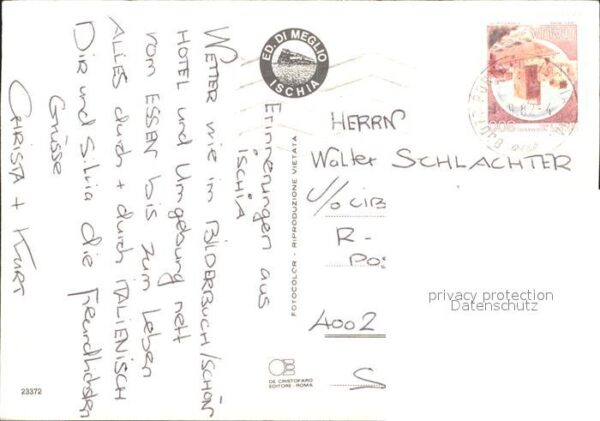 Erinnerungen aus
ISCHIA
WETTER wie im BILDERBUCH/SCHÖN
HOTEL und Umgebung nett
vom ESSEN bis zum Leben
ALLES durch + durch ITALIENISCH
Dir und Silvia die freundlichsten
Grüsse
CHRISTA + KURT
ED. DI MEGLIO
ISCHIA
FOTOCOLOR - RIPRODUZIONE VIETATA
HERRN
Walter SCHLACHTER
c/o CIB
R-
PO
4002
S
privacy protection
Datenschutz
DE CRISTOFARO
EDITORE - ROMA
23372